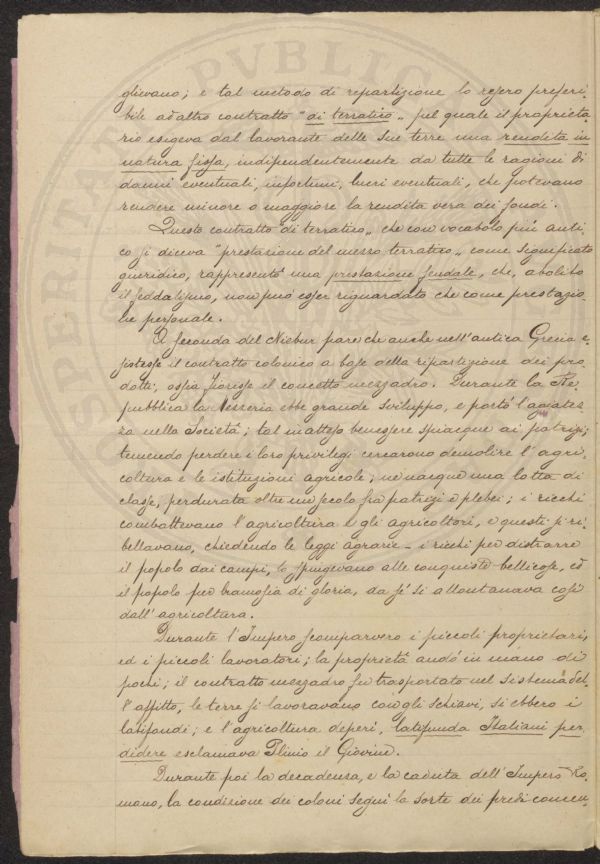 glievano; e tal metodo di repartizione lo resero preferi-
bile ad altro contratto "di terratico" pel quale il proprieta-
rio esigeva dal lavorante delle sue terre una rendita in
natura fissa, indipendentemente da tutte le ragioni di
danni eventuali, infortuni, lucri eventuali, che potevano
rendere minore o maggiore la rendita vera dei fondi.
Questo contratto "di terratico" che con vocabolo più anti-
co si diceva "prestazione del mezzo terratico" come significato
giuridico, rappresentò una prestazione feudale, che, abolito
il feddalismo, non può esser riguardato che come prestazio-
ne personale.
A seconda del Niebur pare che anche nell'antica Grecia e-
sistesse il contratto colonico a base della ripartizione dei pro-
dotti, ossia fioresse il concetto mezzadro. Durante la Re-
pubblica la Messeria ebbe grande sviluppo, e portò l'agiatez-
za nella Società; tal inatteso benessere spiacque ai patrizi;
temendo perdere i loro privilegi cercarono demolire l'agri-
coltura e le istituzioni agricole; ne nacque una lotta di
classe, perdurata oltre un secolo fra patrizi e plebei; i ricchi
combattevano l'agricoltura e gli agricoltori, e questi si ri-
bellavano, chiedendo le leggi agrarie - i ricchi per distrarre
il popolo dai campi, lo spingevano alle conquiste bellicose, ed
il popolo per bramosia di gloria, da sé si allontanava così
dall'agricoltura.
Durante l'Impero scomparvero i piccoli proprietari,
ed i piccoli lavoratori; la proprietà andò in mano di
pochi; il contratto mezzadro fu trasportato nel sistema del-
l'affitto, le terre si lavoravano con gli schiavi, si ebbero i
latifondi; e l'agricoltura deperì, latifunda Italiani per-
didere esclamava Plinio il Giovine.
Durante poi la decadenza, e la caduta dell'Impero Ro-
mano, la condizione dei coloni seguì la sorte dei predi concen-
PVBLICA